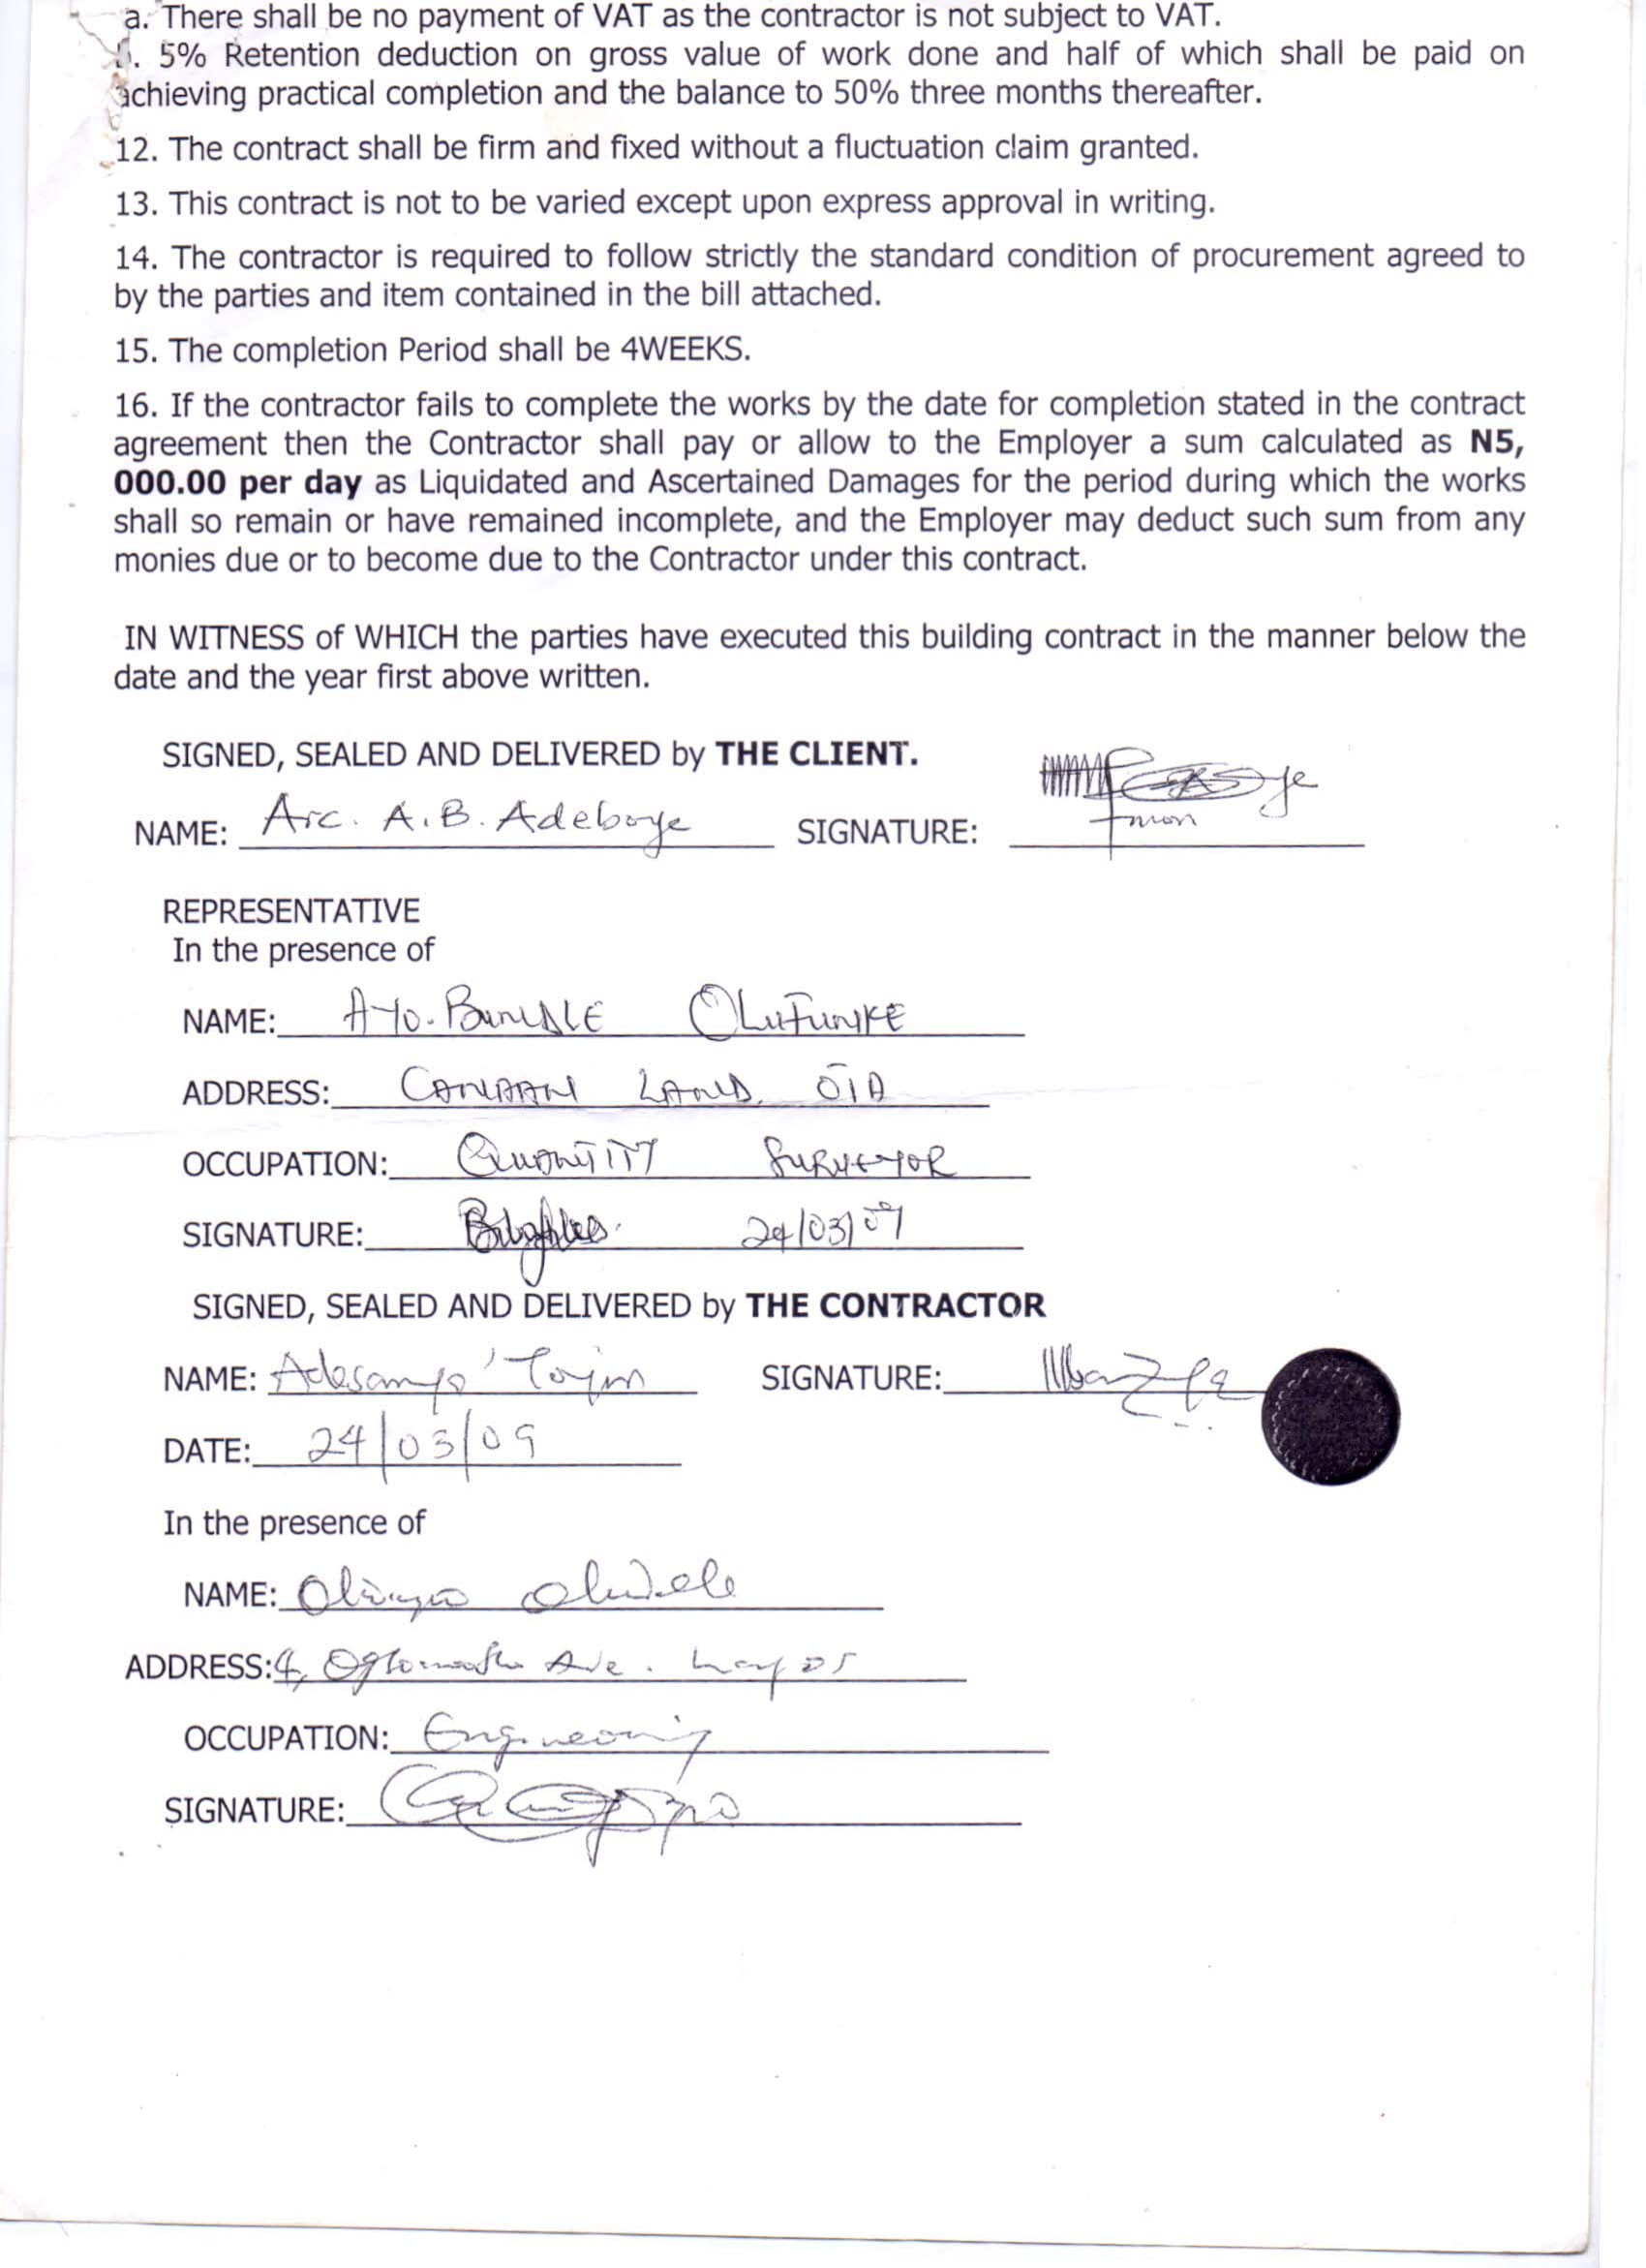 a. There shall be no payment of VAT as the contractor is not subject to VAT.
. 5% Retention deduction on gross value of work done and half of which shall be paid on
achieving practical completion and the balance to 50% three months thereafter.
12. The contract shall be firm and fixed without a fluctuation claim granted.
13. This contract is not to be varied except upon express approval in writing.
14. The contractor is required to follow strictly the standard condition of procurement agreed to
by the parties and item contained in the bill attached.
15. The completion Period shall be 4WEEKS.
16. If the contractor fails to complete the works by the date for completion stated in the contract
agreement then the Contractor shall pay or allow to the Employer a sum calculated as N5,
000.00 per day as Liquidated and Ascertained Damages for the period during which the works
shall so remain or have remained incomplete, and the Employer may deduct such sum from any
monies due or to become due to the Contractor under this contract.
IN WITNESS of WHICH the parties have executed this building contract in the manner below the
date and the year first above written.
SIGNED, SEALED AND DELIVERED by THE CLIENT.
NAME: Arc. A. B. Adeboye SIGNATURE:
REPRESENTATIVE
In the presence of
NAME: AYO. OLUFUNKE
ADDRESS: CANAAN LAND. OTA
OCCUPATION: QUANTITY SURVEYOR
SIGNATURE: 24/03/09
SIGNED, SEALED AND DELIVERED by THE CONTRACTOR
NAME: Adesanya SIGNATURE:
DATE: 24/03/09
In the presence of
NAME:
ADDRESS: 4, Ave. Lagos
OCCUPATION: Engineering
SIGNATURE: